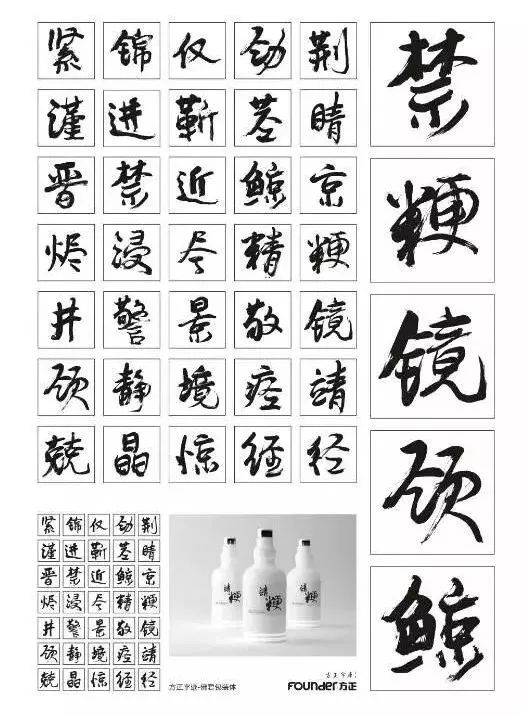 紧 锦 仅 劲 荆
谨 进 靳 茎 睛
晋 禁 近 鲸 京
烬 浸 尽 精 粳
井 警 景 敬 镜
颈 静 境 痉 靖
兢 晶 惊 经 径
禁
粳
镜
颈
鲸
紧 锦 仅 劲 荆
谨 进 靳 茎 睛
晋 禁 近 鲸 京
烬 浸 尽 精 粳
井 警 景 敬 镜
颈 静 境 痉 靖
兢 晶 惊 经 径
方正字迹-佛君包装体
方正字库
FOUNDER 方正